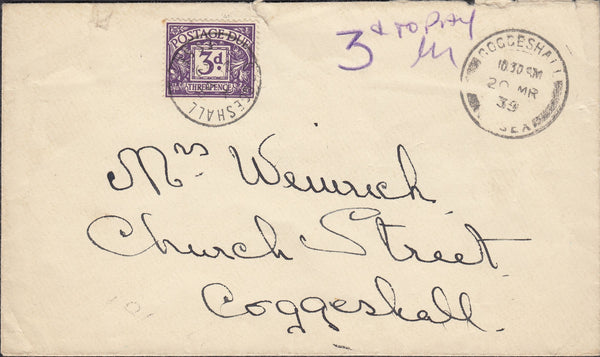 POSTAGE DUE
3d.
THREEPENCE
GGESHALL
3d TO PAY
COGGESHALL
10.30 AM
20 MR
39
ESSEX
Mrs Weinrich
Church Street
Coggeshall.